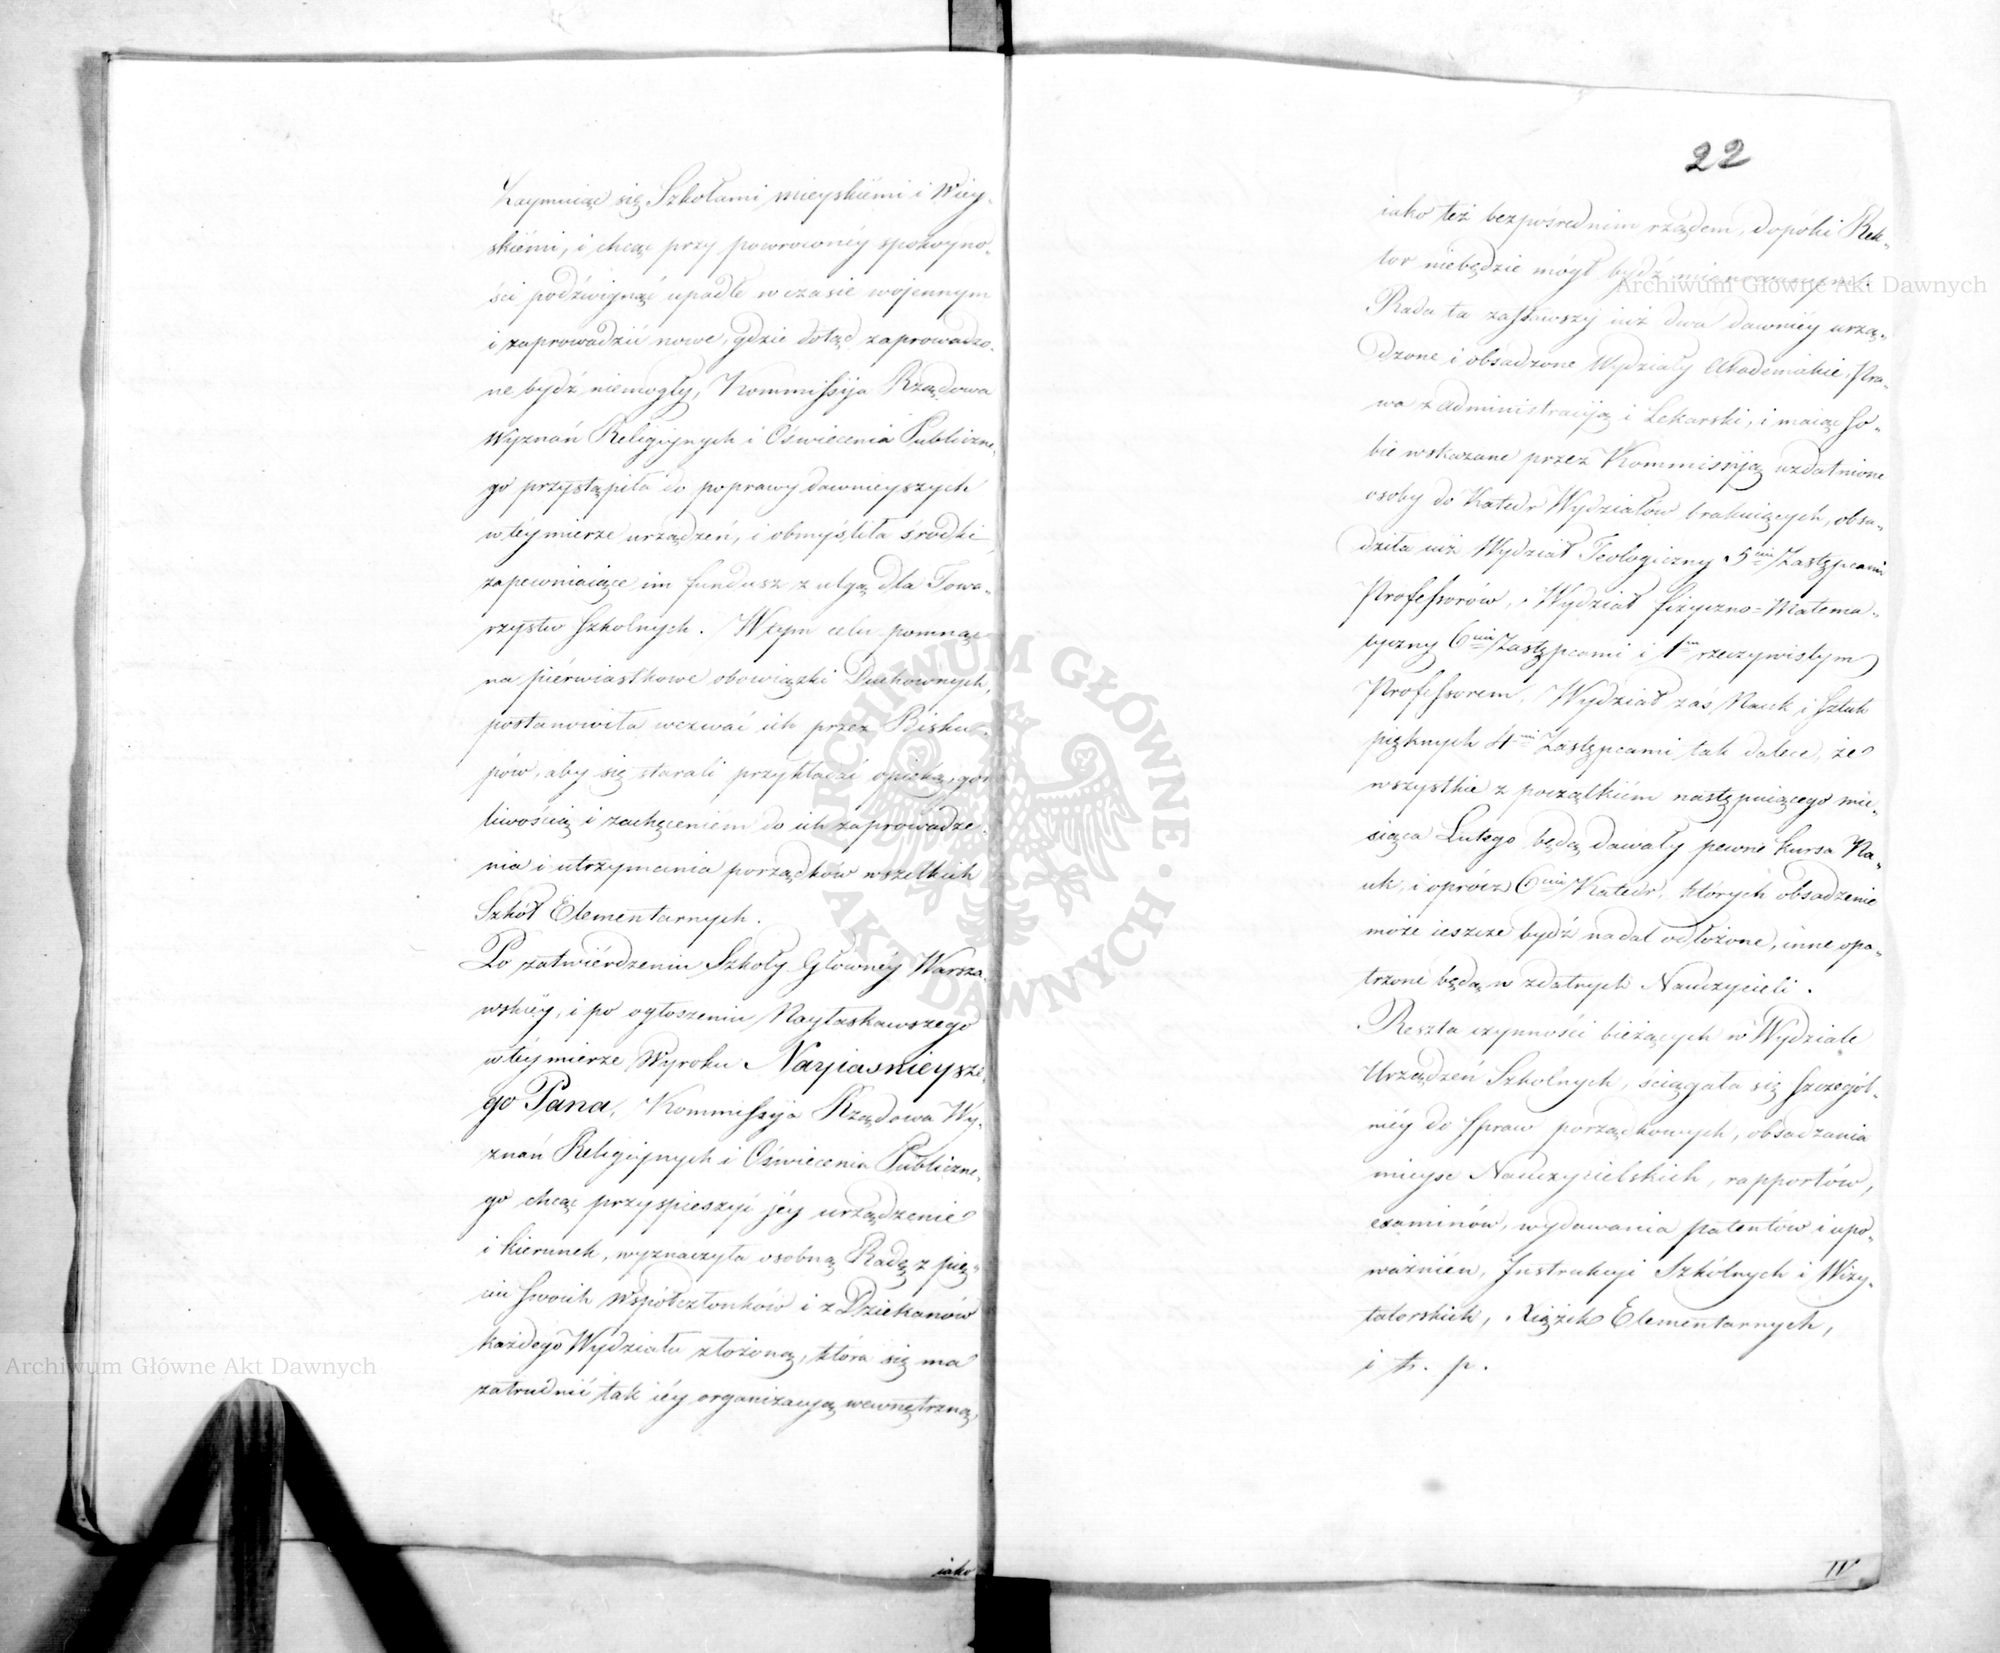 Zaymuiąc się Szkołami mieyskiémi i Wiey-
skiémi, i chcąc przy powroconéy spokoyno-
ści podźwignąć upadłe w czasie wojennym
i zaprowadzić nowe, gdzie dotąd zaprowadzo-
ne bydź niemogły, Kommissyja Rządowa
Wyznań Religiynych i Oświecenia Publiczne-
go przystąpiła do poprawy dawnieyszych
w téy mierze urządzeń, i obmyśliła środki
zapewniaiące im fundusz z ulgą dla Towa-
rzystw Szkolnych. W tym celu pomnąc
na piérwiastkowe obowiązki Duchownych,
postanowiła wezwać ich przez Bisku-
pów, aby się starali przykładać opieką, gor-
liwością i zachęceniem do ich zaprowadze-
nia i utrzymania porządków wszelkich
Szkół Elementarnych.
Po zatwiérdzeniu Szkoły Głównéy Warsza-
wskiéy, i po ogłoszeniu Nayłaskawszego
w téy mierze Wyroku Nayiasnieysze-
go Pana, Kommissyja Rządowa Wy-
znań Religiynych i Oświecenia Publiczne-
go chcąc przyspieszyć jéy urządzenie
i kierunek, wyznaczyła osobną Radę z pię-
ciu swoich Współczłonków i z Dziekanów
każdego Wydziału złożoną, która się ma
zatrudnić tak iéy organizacyą wewnętrzną,
iako
22
iako też bezpośrednim rządem, dopóki Rek-
tor niebędzie mógł bydź mianowanym.
Rada ta zastawszy iuż dwa dawniéy urzą-
dzone i obsadzone Wydziały Akademickie, Pra-
wa z administracyją i Lekarski, i maiąc so-
bie wskazane przez Kommissyją uzdatnione
osoby do Katedr Wydziałów brakuiących, obsa-
dziła iuż Wydział Teologiczny 5cią Zastępcami
Professorów, Wydział fizyczno-Matema-
tyczny 6cią Zastępcami i 1m rzeczywistym
Professorem, Wydział zaś Nauk i Sztuk
pięknych 4mi Zastępcami tak dalece, że
wszystkie z początkiém następuiącego mie-
siąca Lutego będą dawały pewne kursa Na-
uk, i oprócz 6ciu Katedr, których obsadzenie
może ieszcze bydź nadal odłożone, inne opa-
trzone będą w zdatnych Nauczycieli.
Reszta czynności bieżących w Wydziale
Urządzeń Szkolnych, ściągała się szczegól-
niéy do spraw porządkowych, obsadzania
mieysc Nauczycielskich, rapportów,
examinów, wydawania patentów i upo-
ważnień, Instrukcyi Szkólnych i Wizy-
tatorskich, Xiążek Elementarnych,
i t. p.
IV
Archiwum Główne Akt Dawnych
Archiwum Główne Akt Dawnych
ARCHIWUM GŁÓWNE AKT DAWNYCH